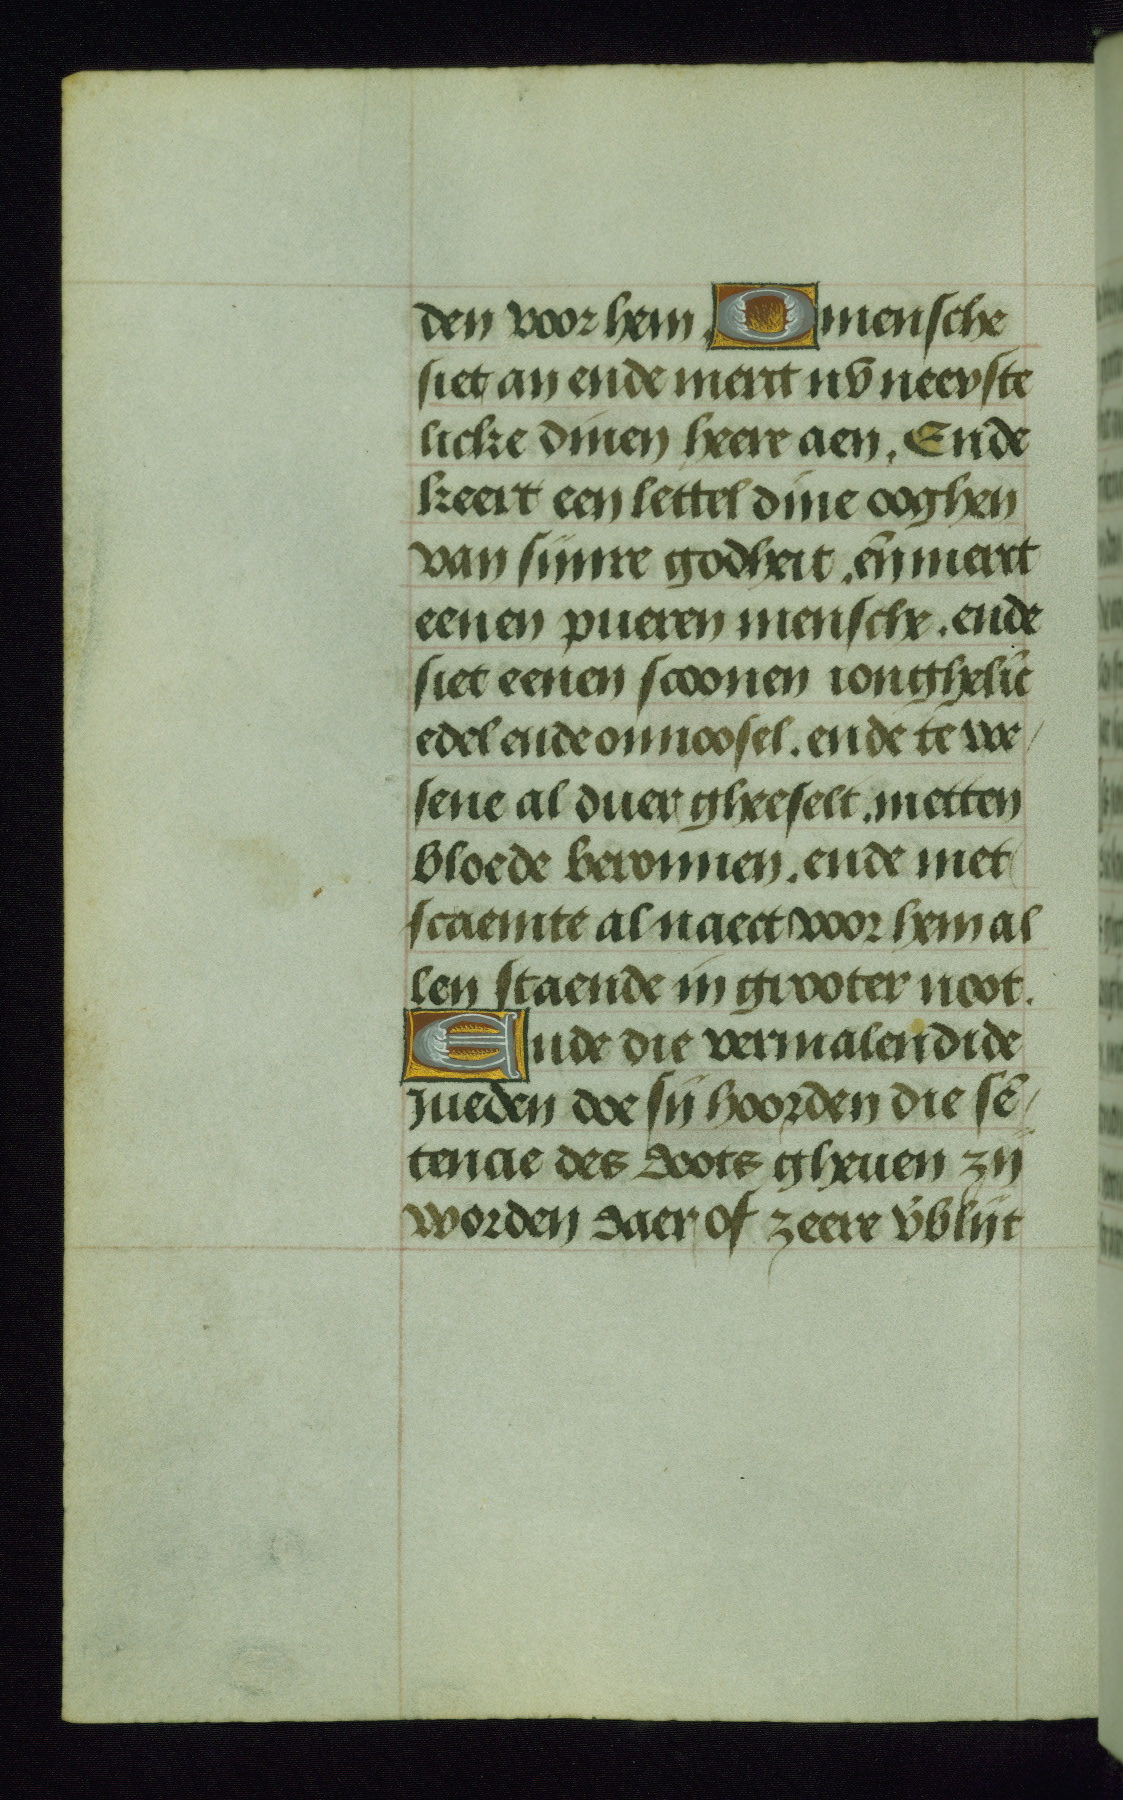 den voor hem. O mensche
siet an ende merct nv̄ neerste
licke dinen heere aen. Ende
keert een lettel dine ooghen
van sijnre godheit, en̄ merct
eenen pueren mensche. ende
siet eenen scoonen ionghelīc
edel ende onnoosel. ende te we/
sene al duer gheeselt. metten
bloede beronnen. ende met
scaemte al naect voor hem al
len staende in grooter noot.
Ende die vermalendide
Jueden doe sij hoorden die sē/
tencie des doots gheuen zij
worden daer of zeere v̄blijt